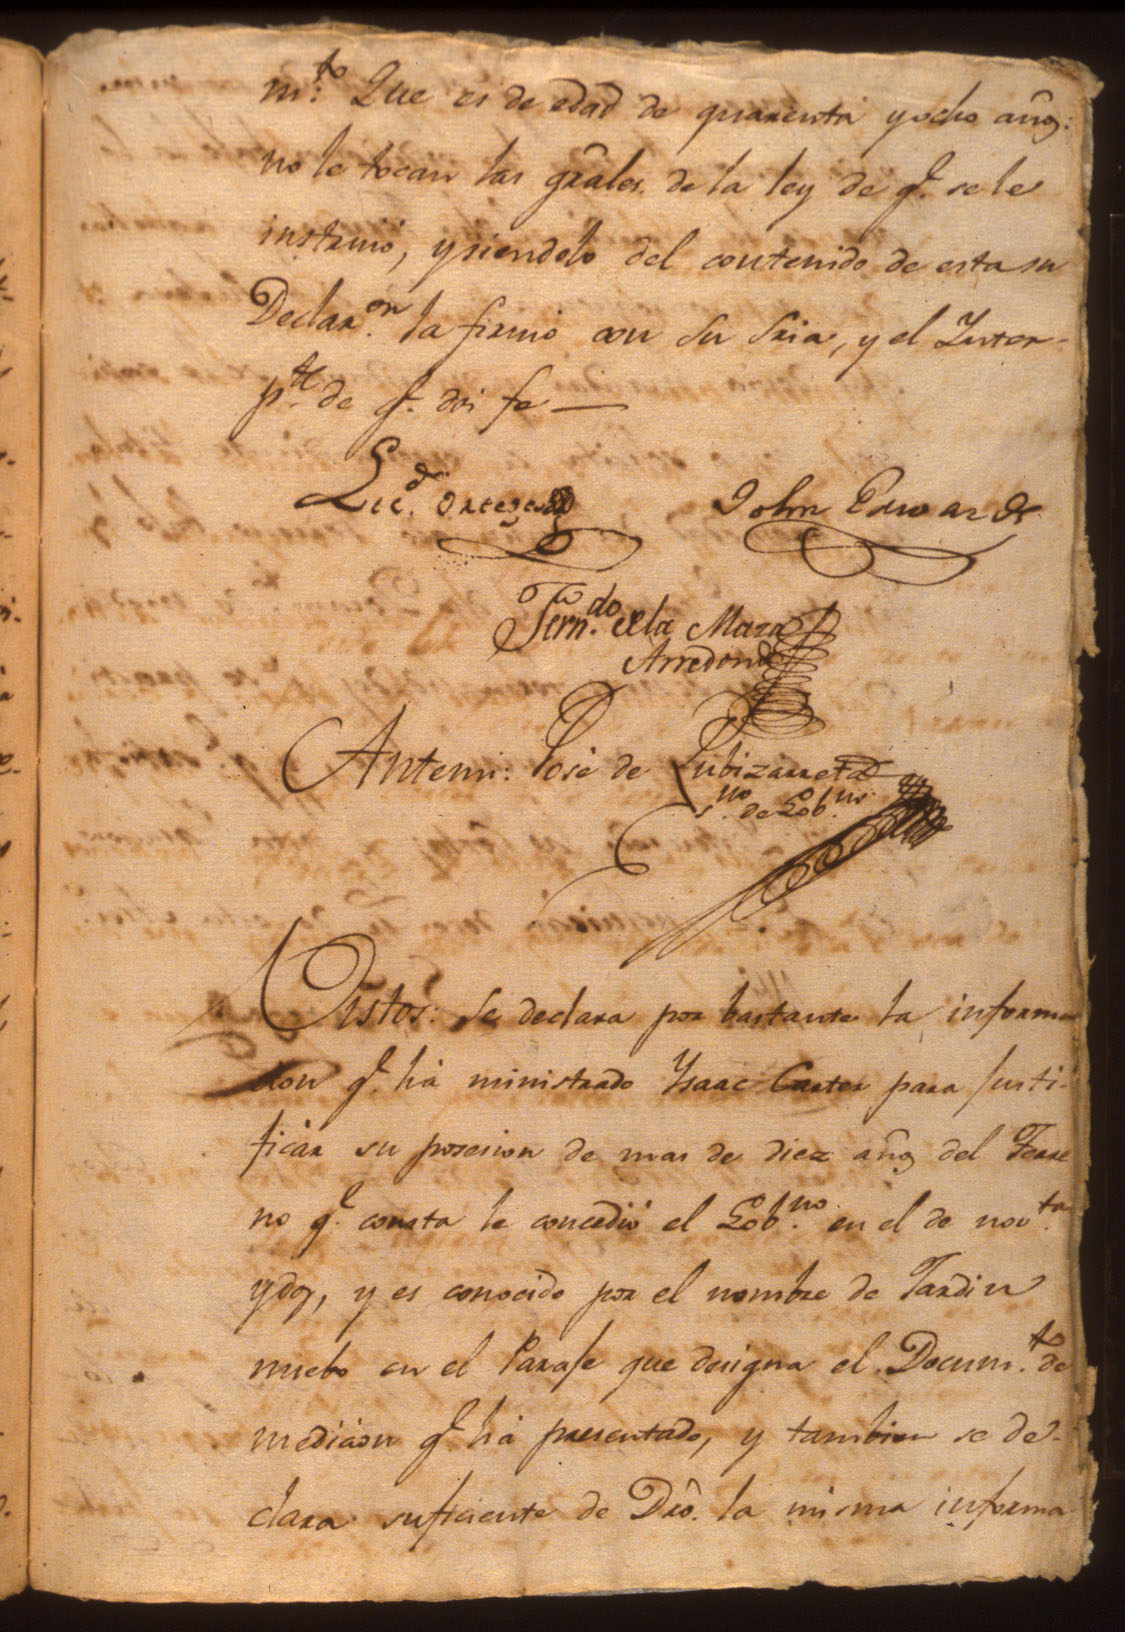 m.to Que es de edad de quarenta y ocho añg:
no le tocan las grãles. de la ley de q.e se le
instruió, y siendolo del contenido de esta su
Declar.on la firmó con su Sria, y el Inter-
p.te de q.e doi fe —
Lic.do Ortega
John Edwards
Fern.do de la Maza
Arredondo
Antemi: José de Zubizarreta
s.no de Gob.no
Vistos: Se declara por bastante la informa
cion q.e há ministrado Ysaac Carter para Justi-
ficár su posesion de mas de diez añg del Terre
no q.e consta le concedió el Gob.no en el de nov.ta
y dos, y es conocido por el nombre de Jardin
nuebo en el Parage que designa el Docum.to de
medicion q.e há presentado, y tambien se de-
clara suficiente de Dro. la misma informa